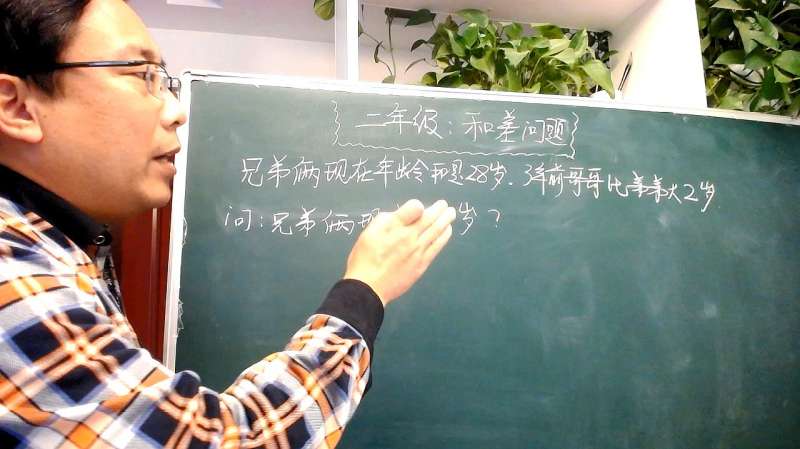 二年级:和差问题
兄弟俩现在年龄和是28岁、3年前哥哥比弟弟大2岁
问:兄弟俩现 岁?